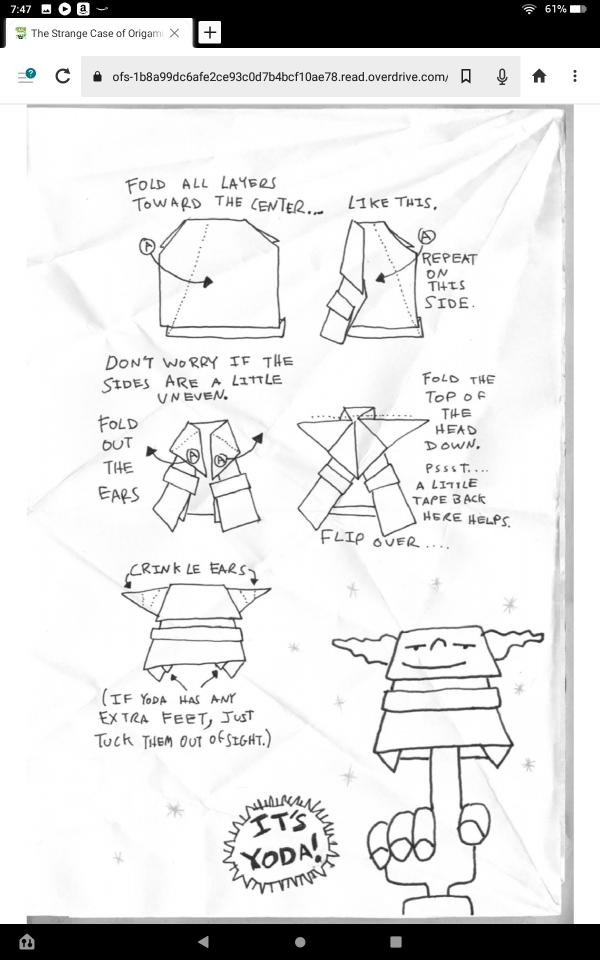 7:47
61%
The Strange Case of Origam
ofs-1b8a99dc6afe2ce93c0d7b4bcf10ae78.read.overdrive.com/
FOLD ALL LAYERS
TOWARD THE CENTER...
LIKE THIS.
A
A
REPEAT
ON
THIS
SIDE.
DON'T WORRY IF THE
SIDES ARE A LITTLE
UNEVEN.
FOLD
OUT
THE
EARS
A
A
FOLD THE
TOP OF
THE
HEAD
DOWN.
PSSST....
A LITTLE
TAPE BACK
HERE HELPS.
FLIP OVER ....
CRINKLE EARS
(IF YODA HAS ANY
EXTRA FEET, JUST
TUCK THEM OUT OF SIGHT.)
IT'S
YODA!